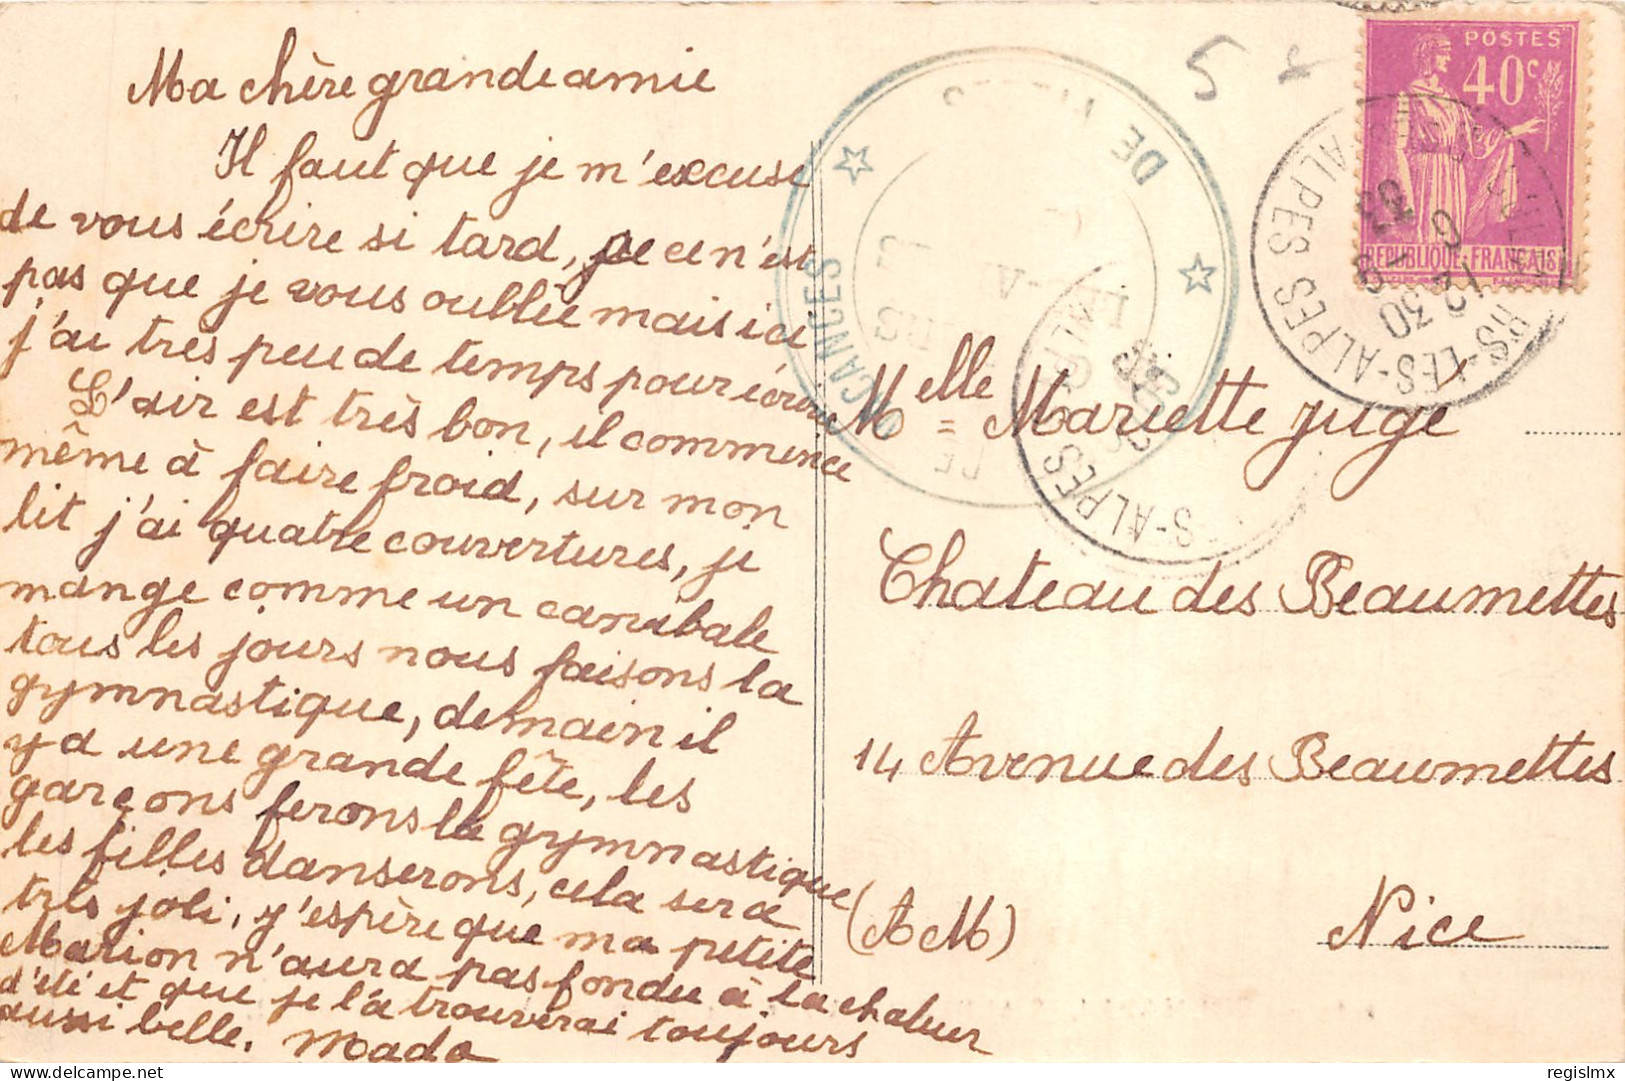 Ma chère grande amie
Il faut que je m'excuse
de vous écrire si tard, ce n'est
pas que je vous oubliée mais ici
j'ai tres peu de temps pour écrire
L'air est très bon, il commence
même à faire froid, sur mon
lit j'ai quatre couvertures, je
mange comme un cannibale
tous les jours nous faisons la
gymnastique, demain il
y a une grande fête, les
garçons ferons la gymnastique
les filles danserons, cela sera
très joli, j'espère que ma petite
Marion n'aura pas fondu à la chaleur
d'été et que je l'a trouverai toujours
aussi belle. Mado
5
POSTES
40c
REPUBLIQUE FRANÇAISE
RS-LES-ALPES ALPES
12 30
DE
VACANCES
S-ALPES
Melle Mariette Juge
Chateau des Beaumettes
14 Avenue des Beaumettes
(A M) Nice
delcampe.net
regislmx